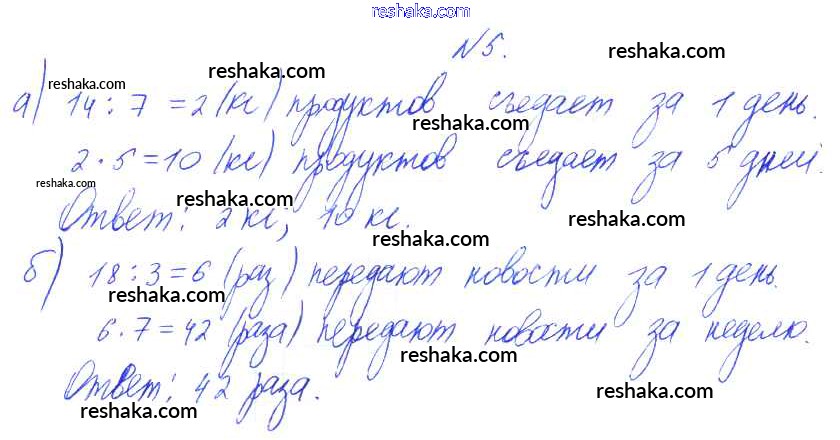 reshaka.com
№5. reshaka.com
reshaka.com reshaka.com
а) 14 : 7 = 2 (кг) продуктов съедает за 1 день.
reshaka.com
2 · 5 = 10 (кг) продуктов съедает за 5 дней.
reshaka.com reshaka.com
Ответ: 2 кг; 10 кг.
reshaka.com
б) 18 : 3 = 6 (раз) передают новости за 1 день.
reshaka.com reshaka.com
6 · 7 = 42 (раза) передают новости за неделю.
reshaka.com
Ответ: 42 раза.
reshaka.com reshaka.com